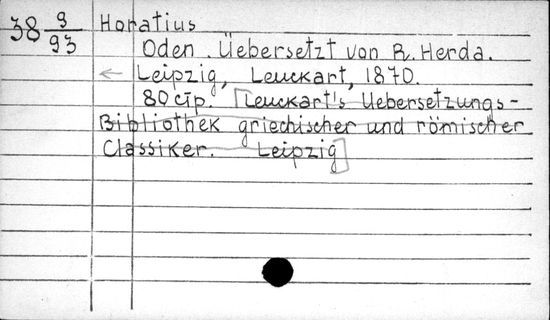 38 9/93 Horatius
Oden. Üebersetzt von R. Herda.
← Leipzig, Leuckart, 1870.
80 стр. [Leuckart's Uebersetzungs-
Bibliothek griechischer und römischer
Classiker. Leipzig]